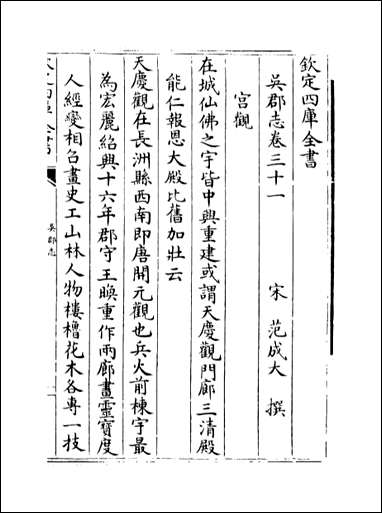 欽定四庫全書
吳郡志卷三十一
宋 范成大 撰
宮觀
在城仙佛之宇皆中興重建或謂天慶觀門廊三清殿
能仁報恩大殿比舊加壯云
天慶觀在長洲縣西南即唐開元觀也兵火前棟宇最
為宏麗紹興十六年郡守王㬇重作兩廊畫靈寶度
人經變相召畫史工山林人物樓櫓花木各專一技
吳郡志